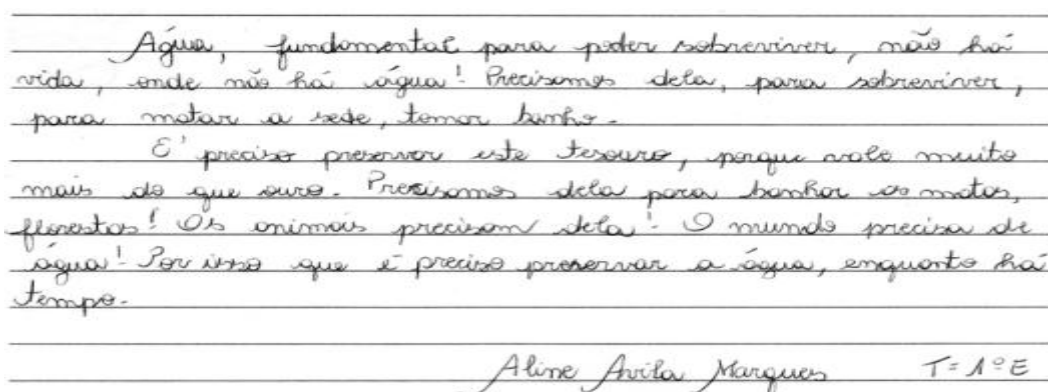 Água, fundamental para poder sobreviver, não há
vida, onde não há água! Precisamos dela, para sobreviver,
para matar a sede, tomar banho.
É preciso preservar este tesouro, porque vale muito
mais do que ouro. Precisamos dela para banhar as matas,
florestas! Os animais precisam dela! O mundo precisa de
água! Por isso que é preciso preservar a água, enquanto há
tempo.
Aline Avila Marques T= 1º E